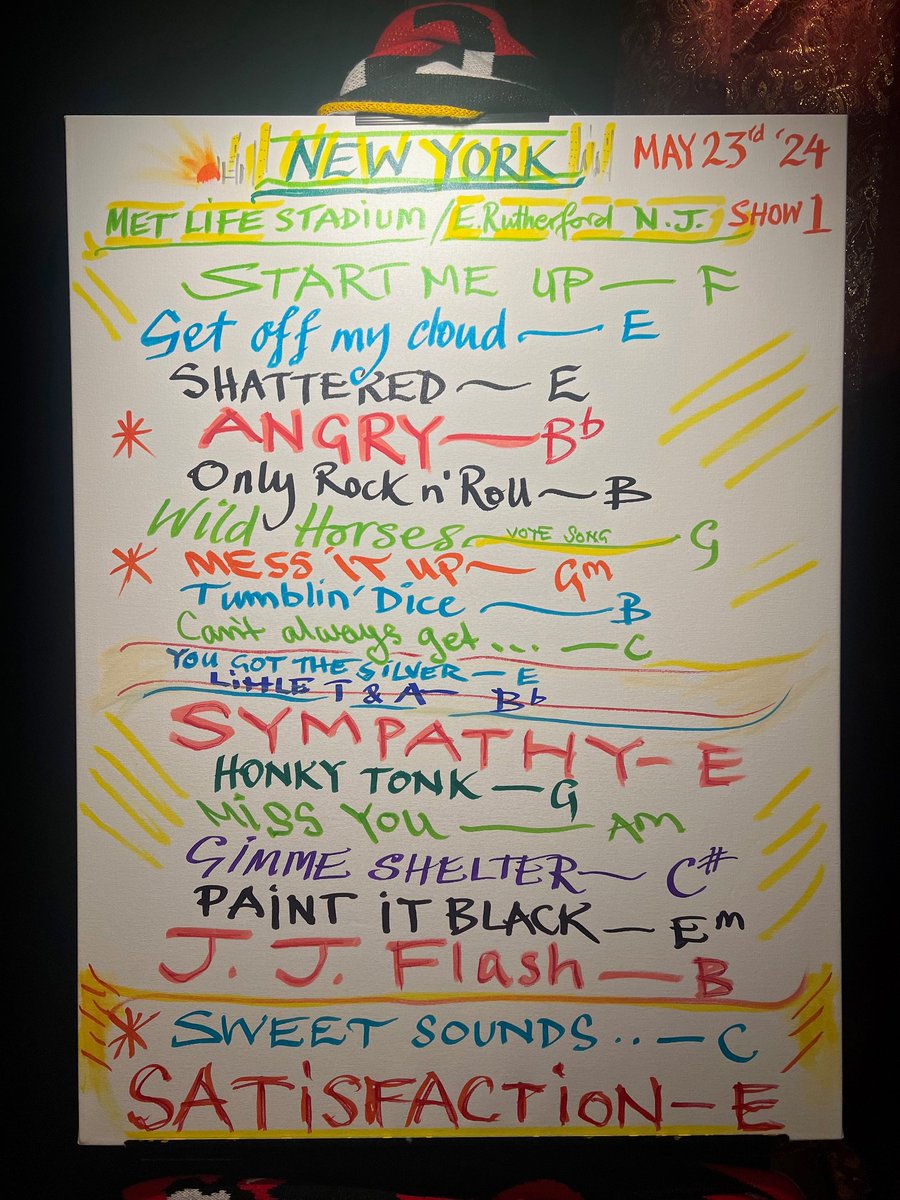 NEW YORK MAY 23rd '24
MET LIFE STADIUM / E. Rutherford N.J. SHOW 1
START ME UP — F
Get off my cloud — E
SHATTERED — E
* ANGRY — Bb
Only Rock n' Roll — B
Wild Horses VOTE SONG — G
* MESS IT UP — Gm
Tumblin' Dice — B
Can't always get... — C
YOU GOT THE SILVER — E
LiTTLE T & A — Bb
SYMPATHY — E
HONKY TONK — G
MiSS YOU — Am
GiMME SHELTER — C#
PAiNT iT BLACK — Em
J. J. Flash — B
* SWEET SOUNDS .. — C
SATiSFACTiON — E